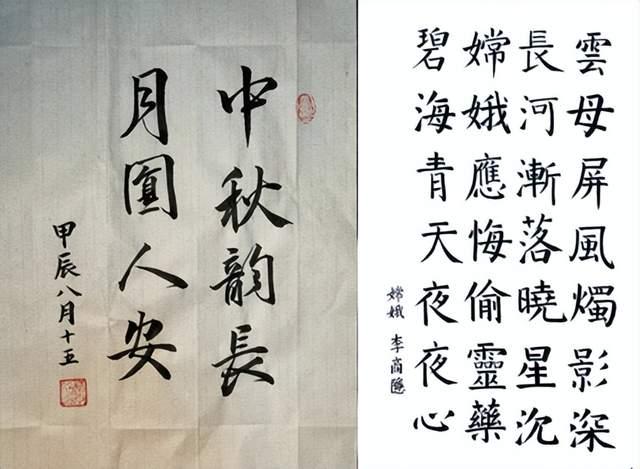 中秋韵長
月圓人安
甲辰八月十五
雲母屏風燭影深
長河漸落曉星沉
嫦娥應悔偷靈藥
碧海青天夜夜心
嫦娥 李商隱